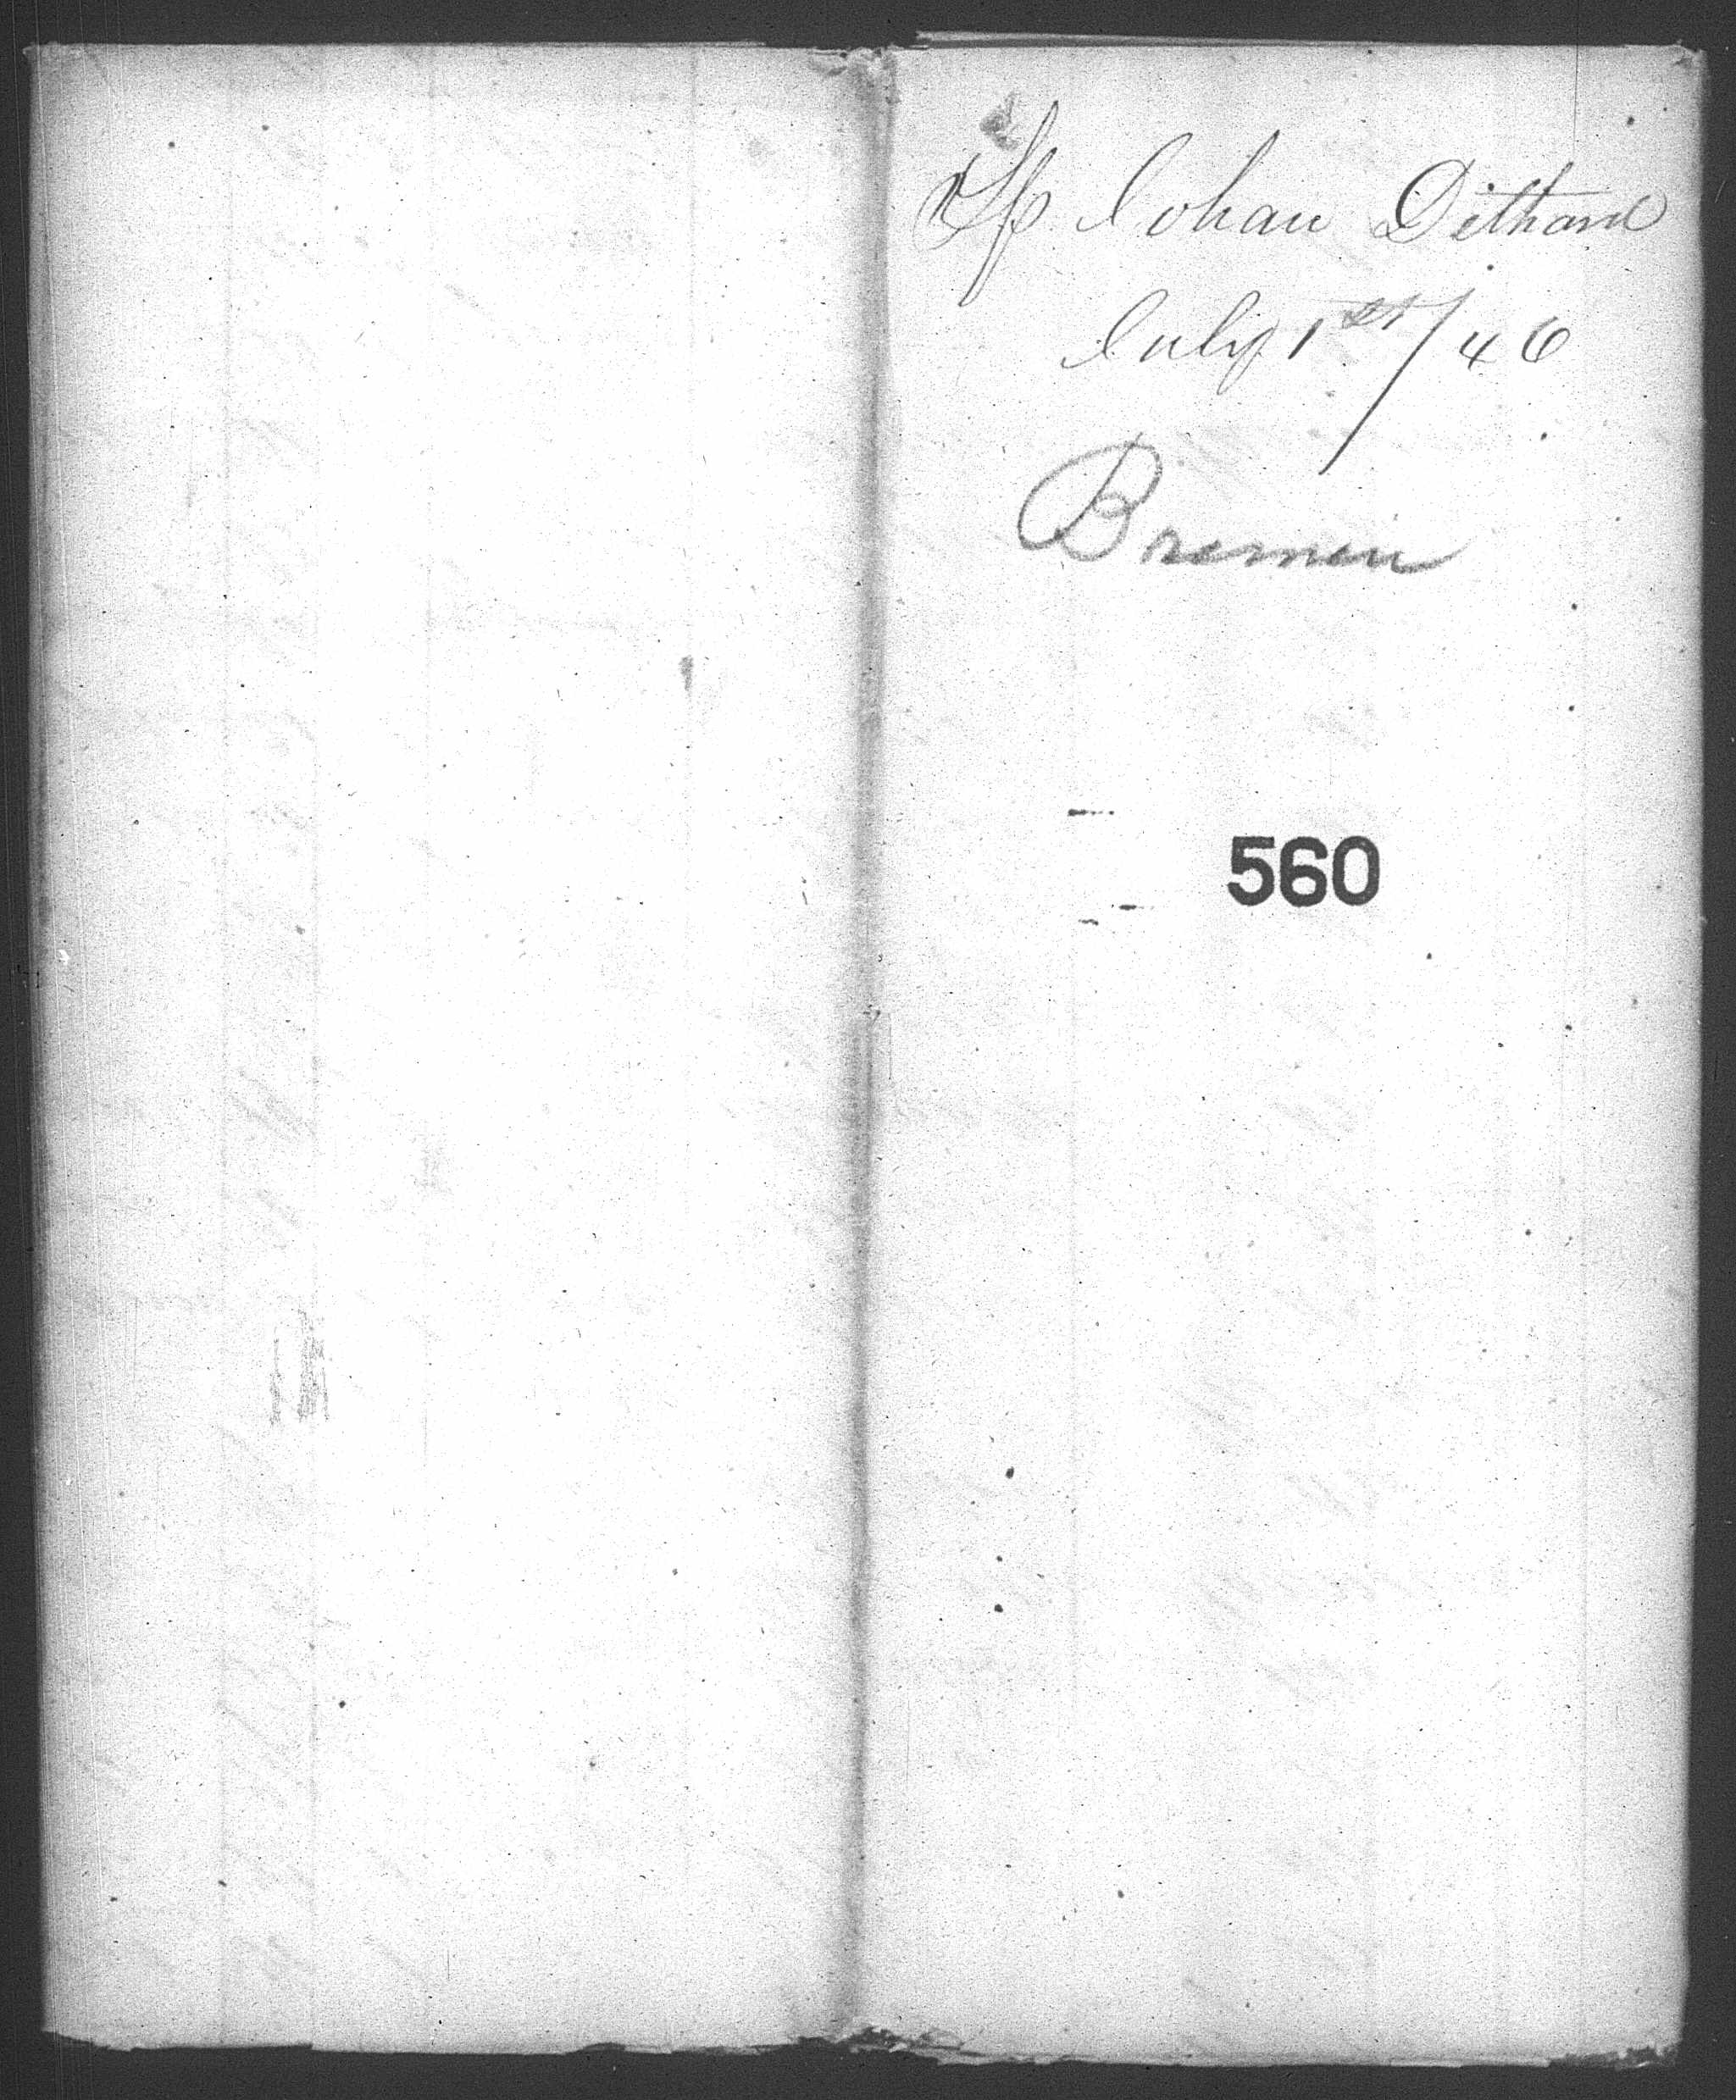 Sp Johan Dethard
July 1st/46
Bremen
560